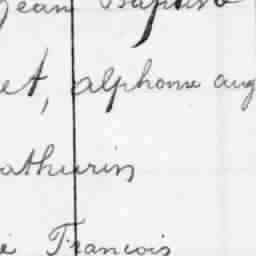 Jean Baptiste
et, alphonse aug
athurin
ie Francois